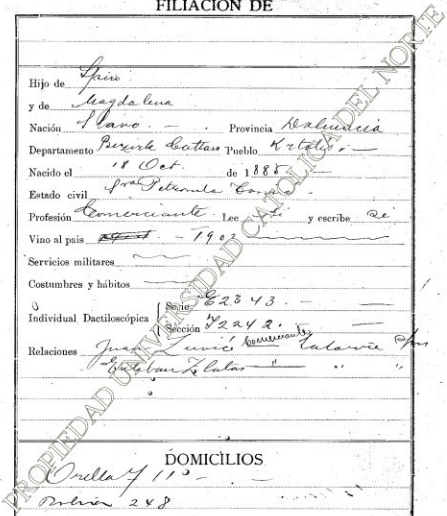 FILIACIÓN DE
Hijo de Spiro
y de Magdalena
Nación Slavo Provincia Dalmacia
Departamento Cattaro Pueblo
Nacido el 18 Oct de 1885
Estado civil Petronila
Profesión Comerciante Lee si y escribe si
Vino al pais 1902
Servicios militares
Costumbres y hábitos
Individual Dactiloscópica Serie E2343
Sección I2242
Relaciones Juan comerciante
Esteban " " "
DOMICILIOS
Orella 7 11º
Bolivar 248
PROPIEDAD UNIVERSIDAD CATOLICA DEL NORTE